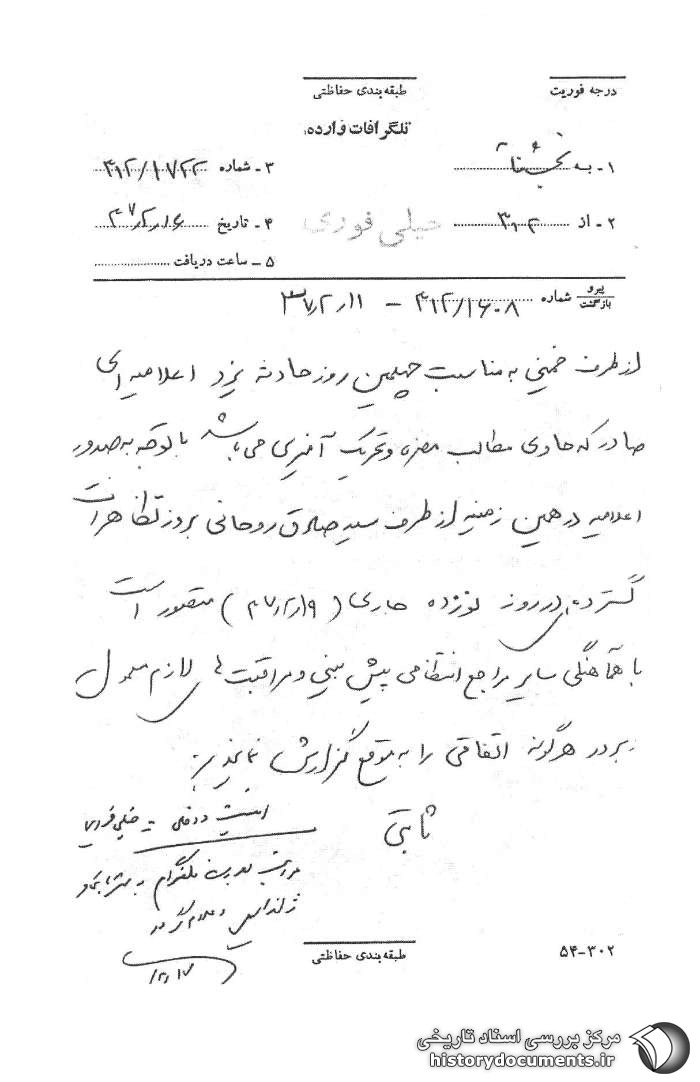 درجه فوریت
طبقه‌بندی حفاظتی
تلگرافات وارده:
۱ـ به
۲ـ از ۳۰۲
خیلی فوری
۳ـ شماره ۳۱۲/۱۷۲۲
۴ـ تاریخ ۳۷/۲/۱۶
۵ ـ ساعت دریافت
پیرو بازگشت شماره ۳۱۲/۱۶۰۸ – ۳۷/۲/۱۱
از طرف خمینی به مناسبت چهلمین روز حادثه یزد اعلامیه‌ای
صادر که حاوی مطالب مضره و تحریک آمیزی می‌باشد با توجه به صدور
اعلامیه در همین زمینه از طرف سید صادق روحانی بروز تظاهرات
گسترده‌ای در روز نوزده جاری (۳۷/۲/۱۹) متصور است
با هماهنگی سایر مراجع انتظامی پیش بینی و مراقبت‌های لازم معمول
هرگونه اتفاقی را به موقع گزارش نمایند
ثابتی
امنیت داخلی – خیلی فوری
تلگرام به
ژاندارمری اعلام گردد
۲/۱۷
طبقه‌بندی حفاظتی
۵۴-۳۰۲
مرکز بررسی اسناد تاریخی
historydocuments.ir